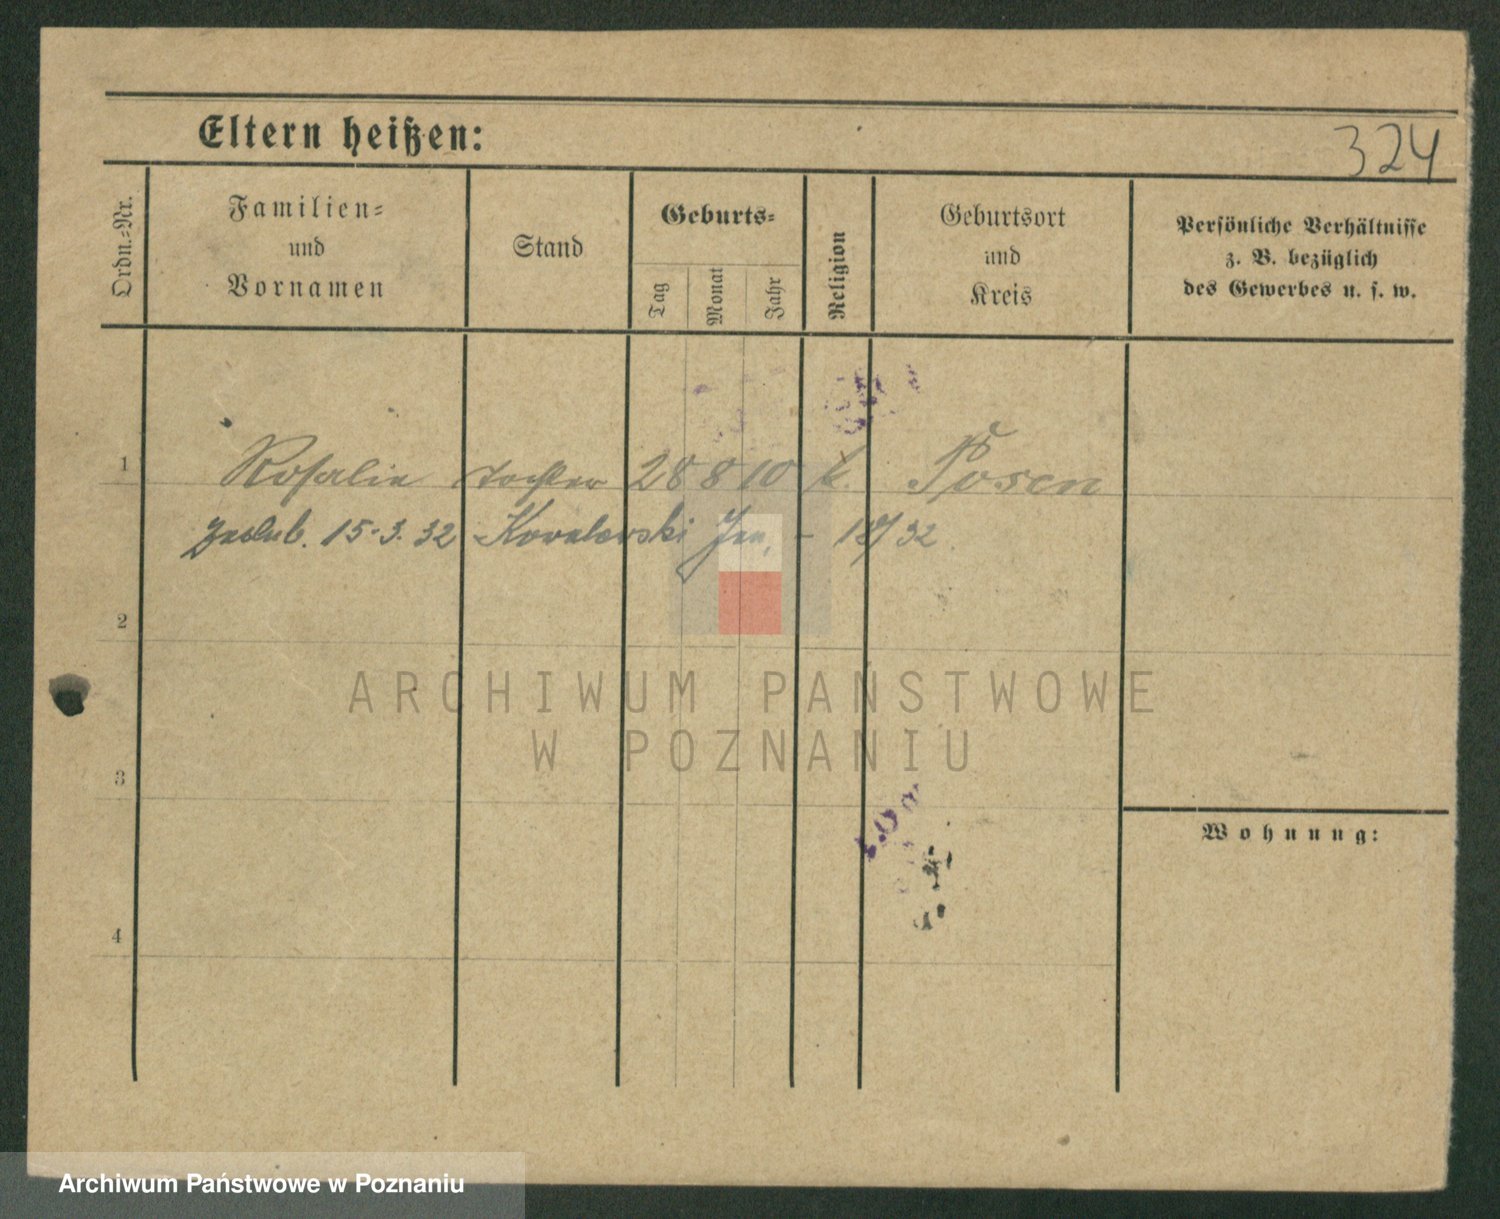 324
Eltern heißen:
Ordn.-Nr.
Familien-
und
Vornamen
Stand
Geburts-
Tag
Monat
Jahr
Religion
Geburtsort
und
Kreis
Persönliche Verhältnisse
z. B. bezüglich
des Gewerbes u. s. w.
1 Rosalie Tochter 28 8 10 k. Posen
15.3.32 Kowalewski Jan, - 32
2
3
4
Wohnung:
ARCHIWUM PAŃSTWOWE
W POZNANIU
Archiwum Państwowe w Poznaniu